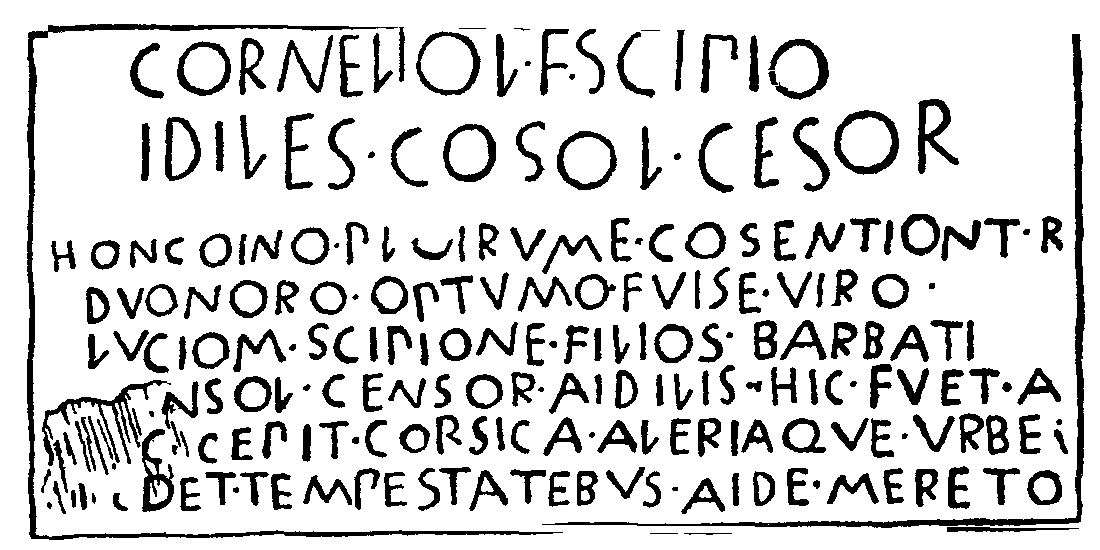 CORNELIO L·F·SCIPIO
IDILES·COSOL·CESOR
HONC OINO·PLOIRVME·COSENTIONT·R
DVONORO·OPTVMO·FVISE·VIRO·
LVCIOM·SCIPIONE·FILIOS·BARBATI
NSOL·CENSOR·AIDILIS·HIC·FVET·A
C·CEPIT·CORSICA·ALERIAQVE·VRBE
DET·TEMPESTATEBVS·AIDE·MERETO